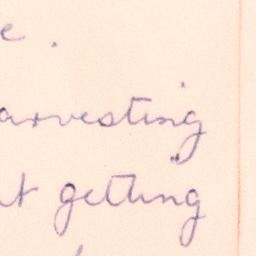 e.
arvesting
t getting